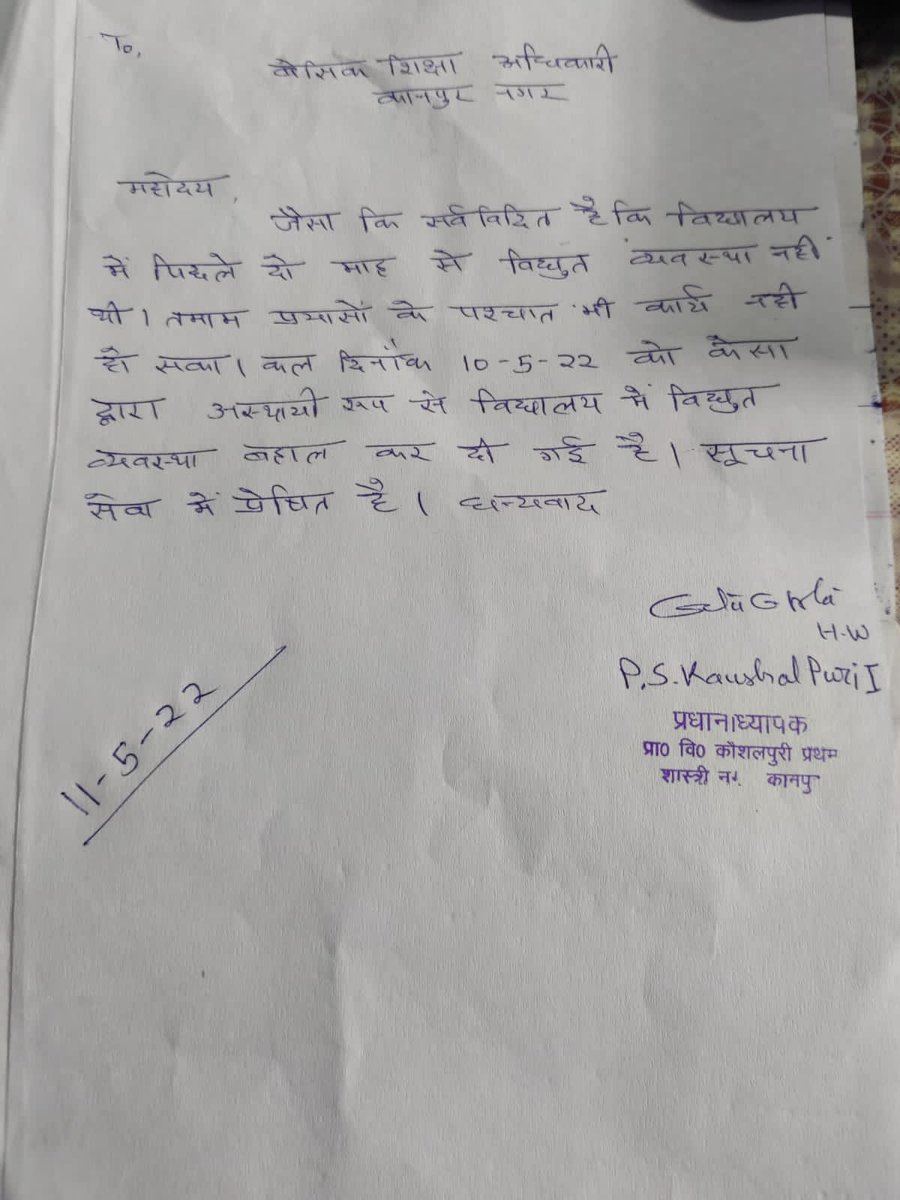 To,
बेसिक शिक्षा अधिकारी
कानपुर नगर
महोदय,
जैसा कि सर्वविदित है कि विद्यालय
में पिछले दो माह से विद्युत व्यवस्था नहीं
थी। तमाम प्रयासों के पश्चात भी कार्य नही
हो सका। कल दिनाँक 10-5-22 को केसा
द्वारा अस्थायी रूप से विद्यालय में विद्युत
व्यवस्था बहाल कर दी गई है। सूचना
सेवा में प्रेषित है। धन्यवाद
H.W
P.S. Kaushal Puri I
प्रधानाध्यापक
प्रा0 वि0 कौशलपुरी प्रथम
शास्त्री न. कानपु
11-5-22